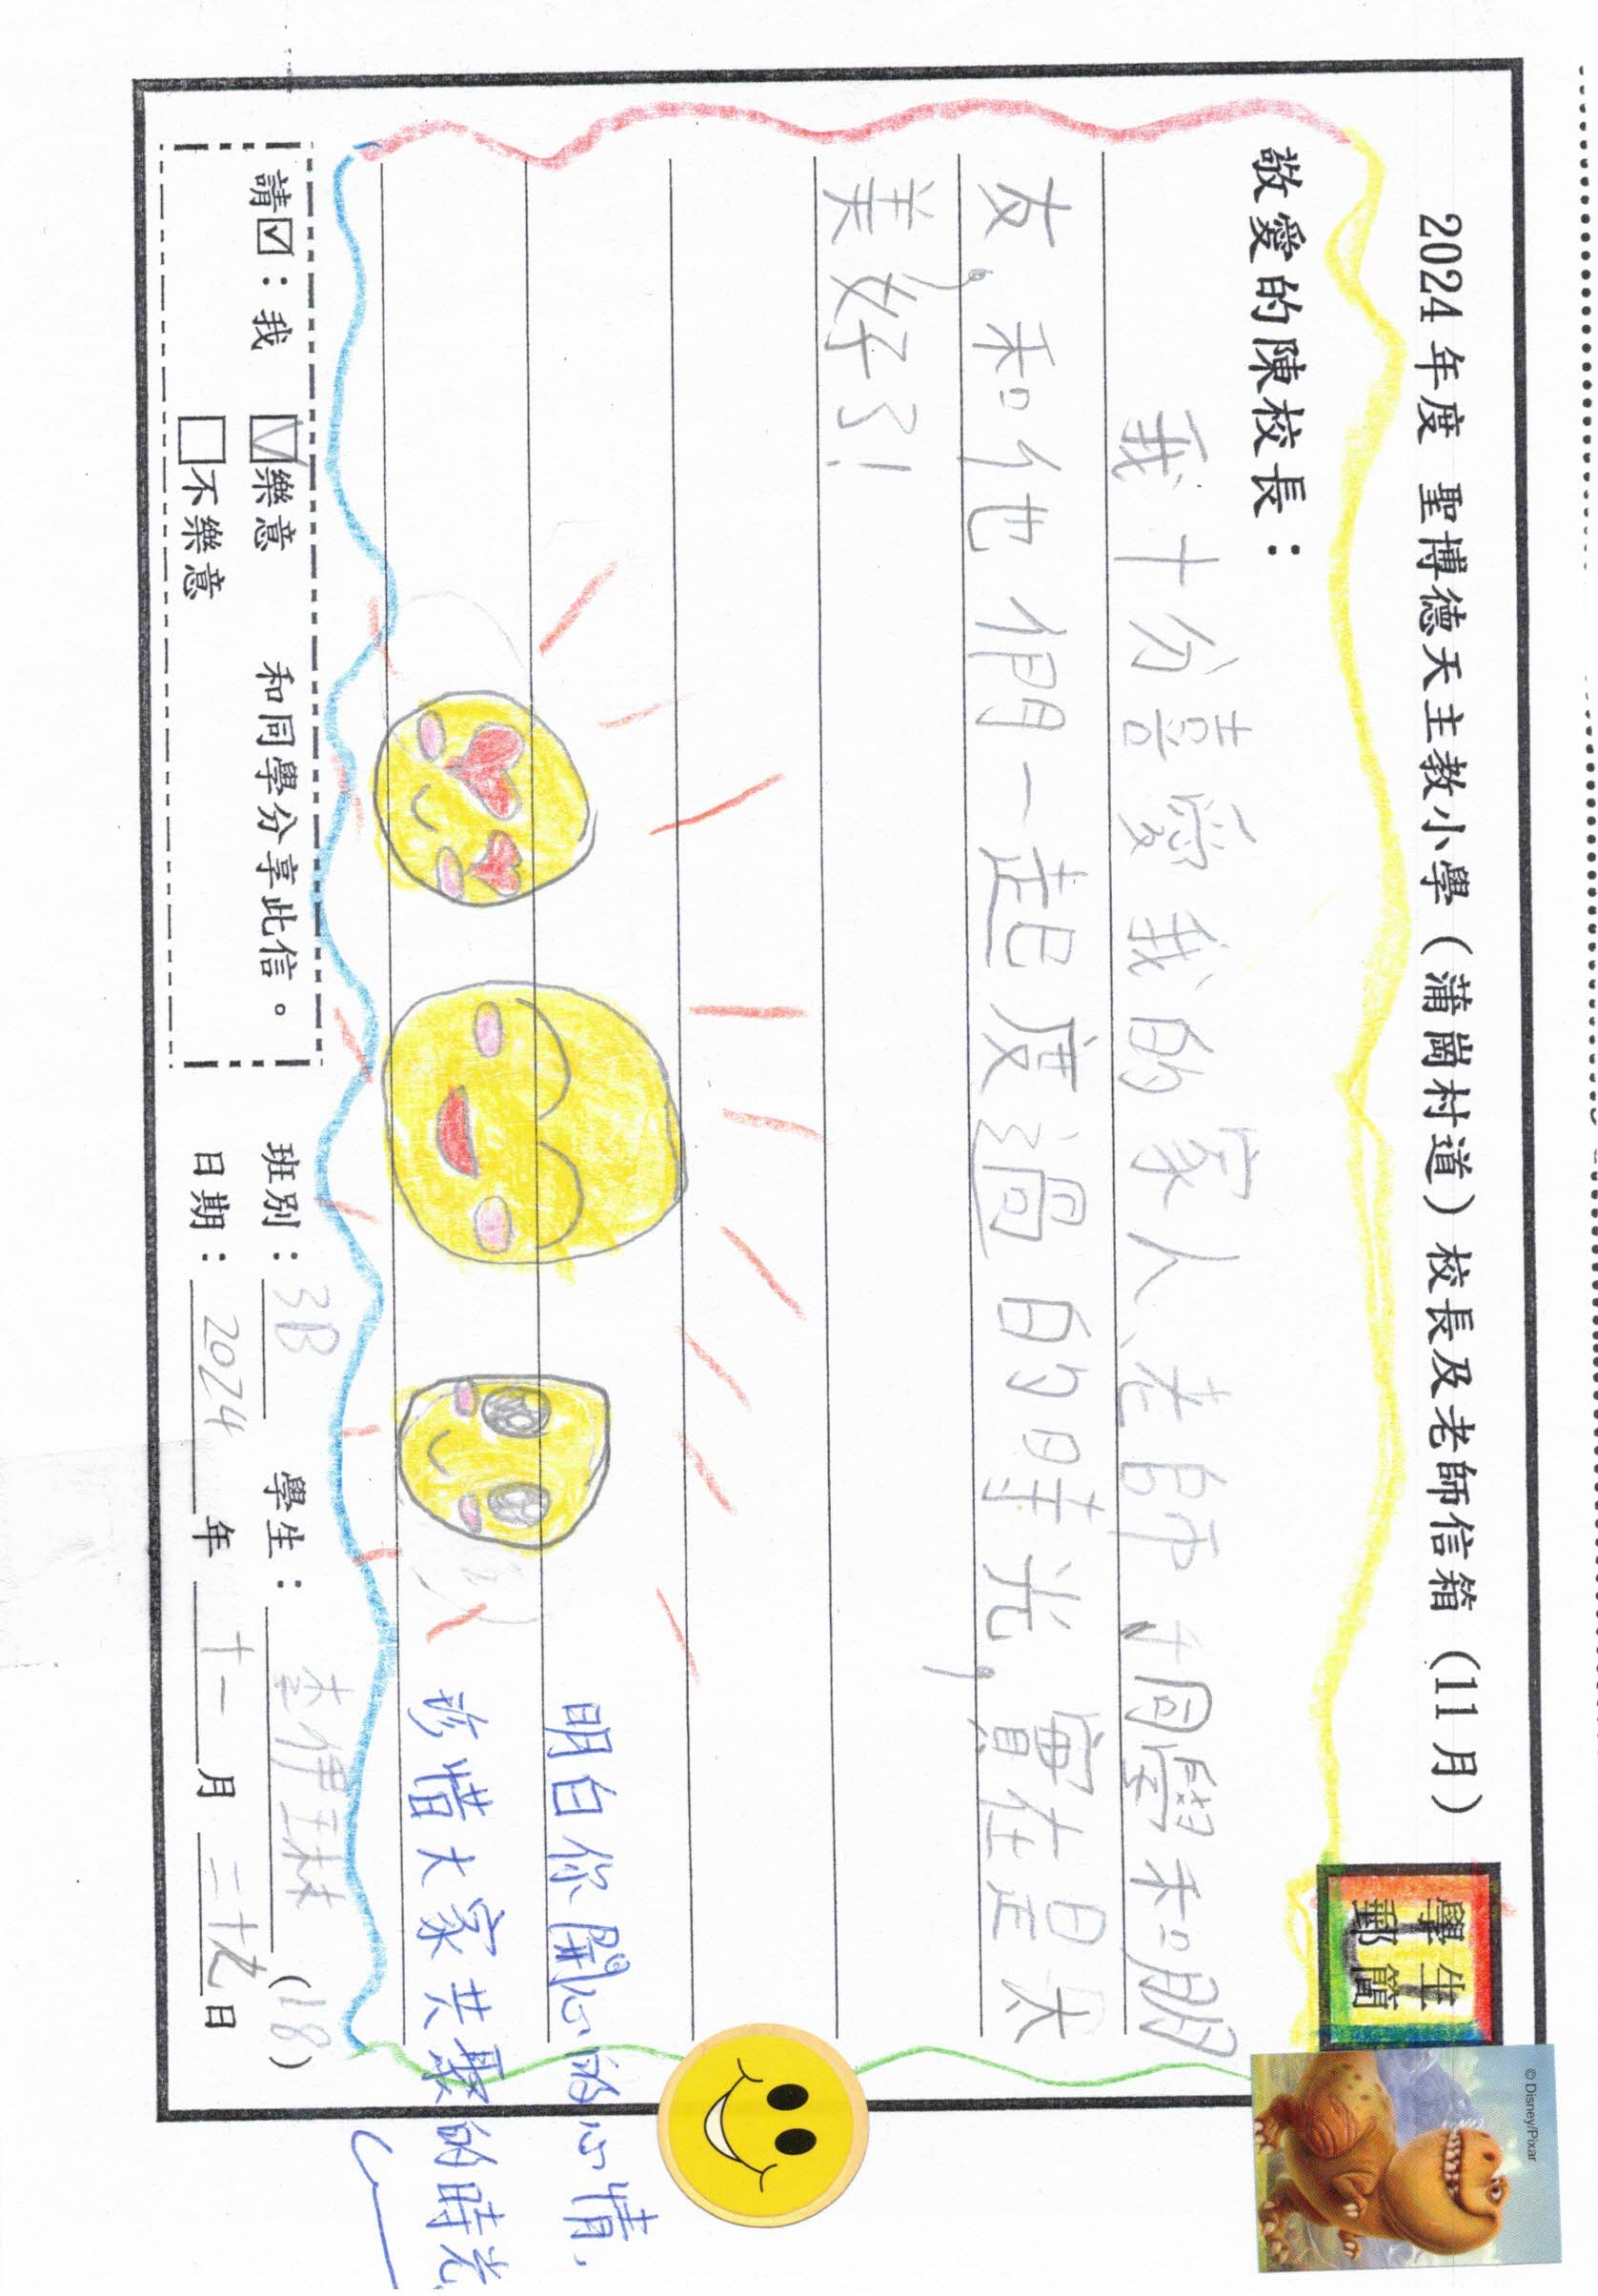 2024 年度 聖博德天主教小學（蒲崗村道）校長及老師信箱（11 月）
學生
郵簡
© Disney/Pixar
敬愛的陳校長：
我十分喜愛我的家人、老師、同學和朋
友，和他們一起度過的時光，實在是太
美好了！
明白你開心的心情，
珍惜大家共聚的時光
請☑：我 ☑樂意 和同學分享此信。
□不樂意
班別：3B 學生：李伊琳 (18)
日期：2024 年 十一 月 二十九 日